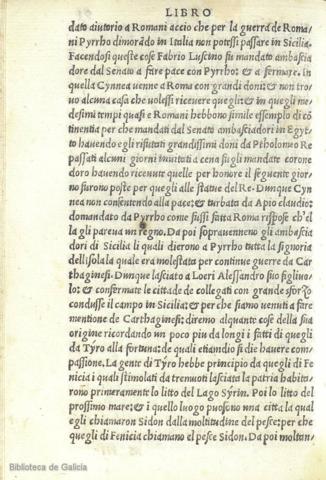 LIBRO
dato aiutorio a Romani accio che per la guerra de Roma-
ni Pyrrho dimorãdo in Italia non potessi passare in Sicilia.
Facendosi queste cose Fabrio Luscino fu mandato ambascia
dore dal Senato a fare pace con Pyrrho: & a fermare. In
quella Cynnea uenne a Roma con grandi doni: & non tro
uo alcuna casa che uolessi riceuere quegli: & in quegli me
desimi tempi quasi e Romani hebbono simile essemplo di cõ
tinentia per che mandati dal Senati ambasciadori in Egyt
to hauendo egli rifiutati grandissimi doni da Ptholomeo Re
passati alcuni giorni inuitati a cena fu gli mandate corone
doro hauendo riceuute quelle per honore il seguente gior-
no furono poste per quegli alle statue del Re. Dunque Cyn
nea non consentendo alla pace: & turbata da Apio claudio:
domandato da Pyrrho come fussi fatta Roma rispose ch'el
la gli pareua un regno. Da poi soprauennero gli ambascia
dori di Sicilia li quali dierono a Pyrrho tutta la signoria
dell'Isola la quale era molestata per continue guerre da Car
thaginesi. Dunque lasciato a Locri Alessandro suo figliuo-
lo: & confermate le cittade de collegati con grande sforzo
condusse il campo in Sicilia: & per che siamo uenuti a fare
mentione de Carthaginesi: diremo alquante cose della sua
origine ricordando un poco piu da longi i fatti di quegli
da Tyro alla fortuna: de quali etiamdio fu die hauere com-
passione. La gente di Tyro hebbe principio da quegli di Fe
nicia i quali stimolati da tremuoti lasciata la patria habita-
rono primeramente lo litto del Lago Syrin. Poi lo litto del
prossimo mare: & i quello luogo puosono una citta la qual
egli chiamaron Sidon dalla moltitudine del pesce: per che
quegli di Fenicia chiamano el pesce Sidon. Da poi moltan-
Biblioteca de Galicia